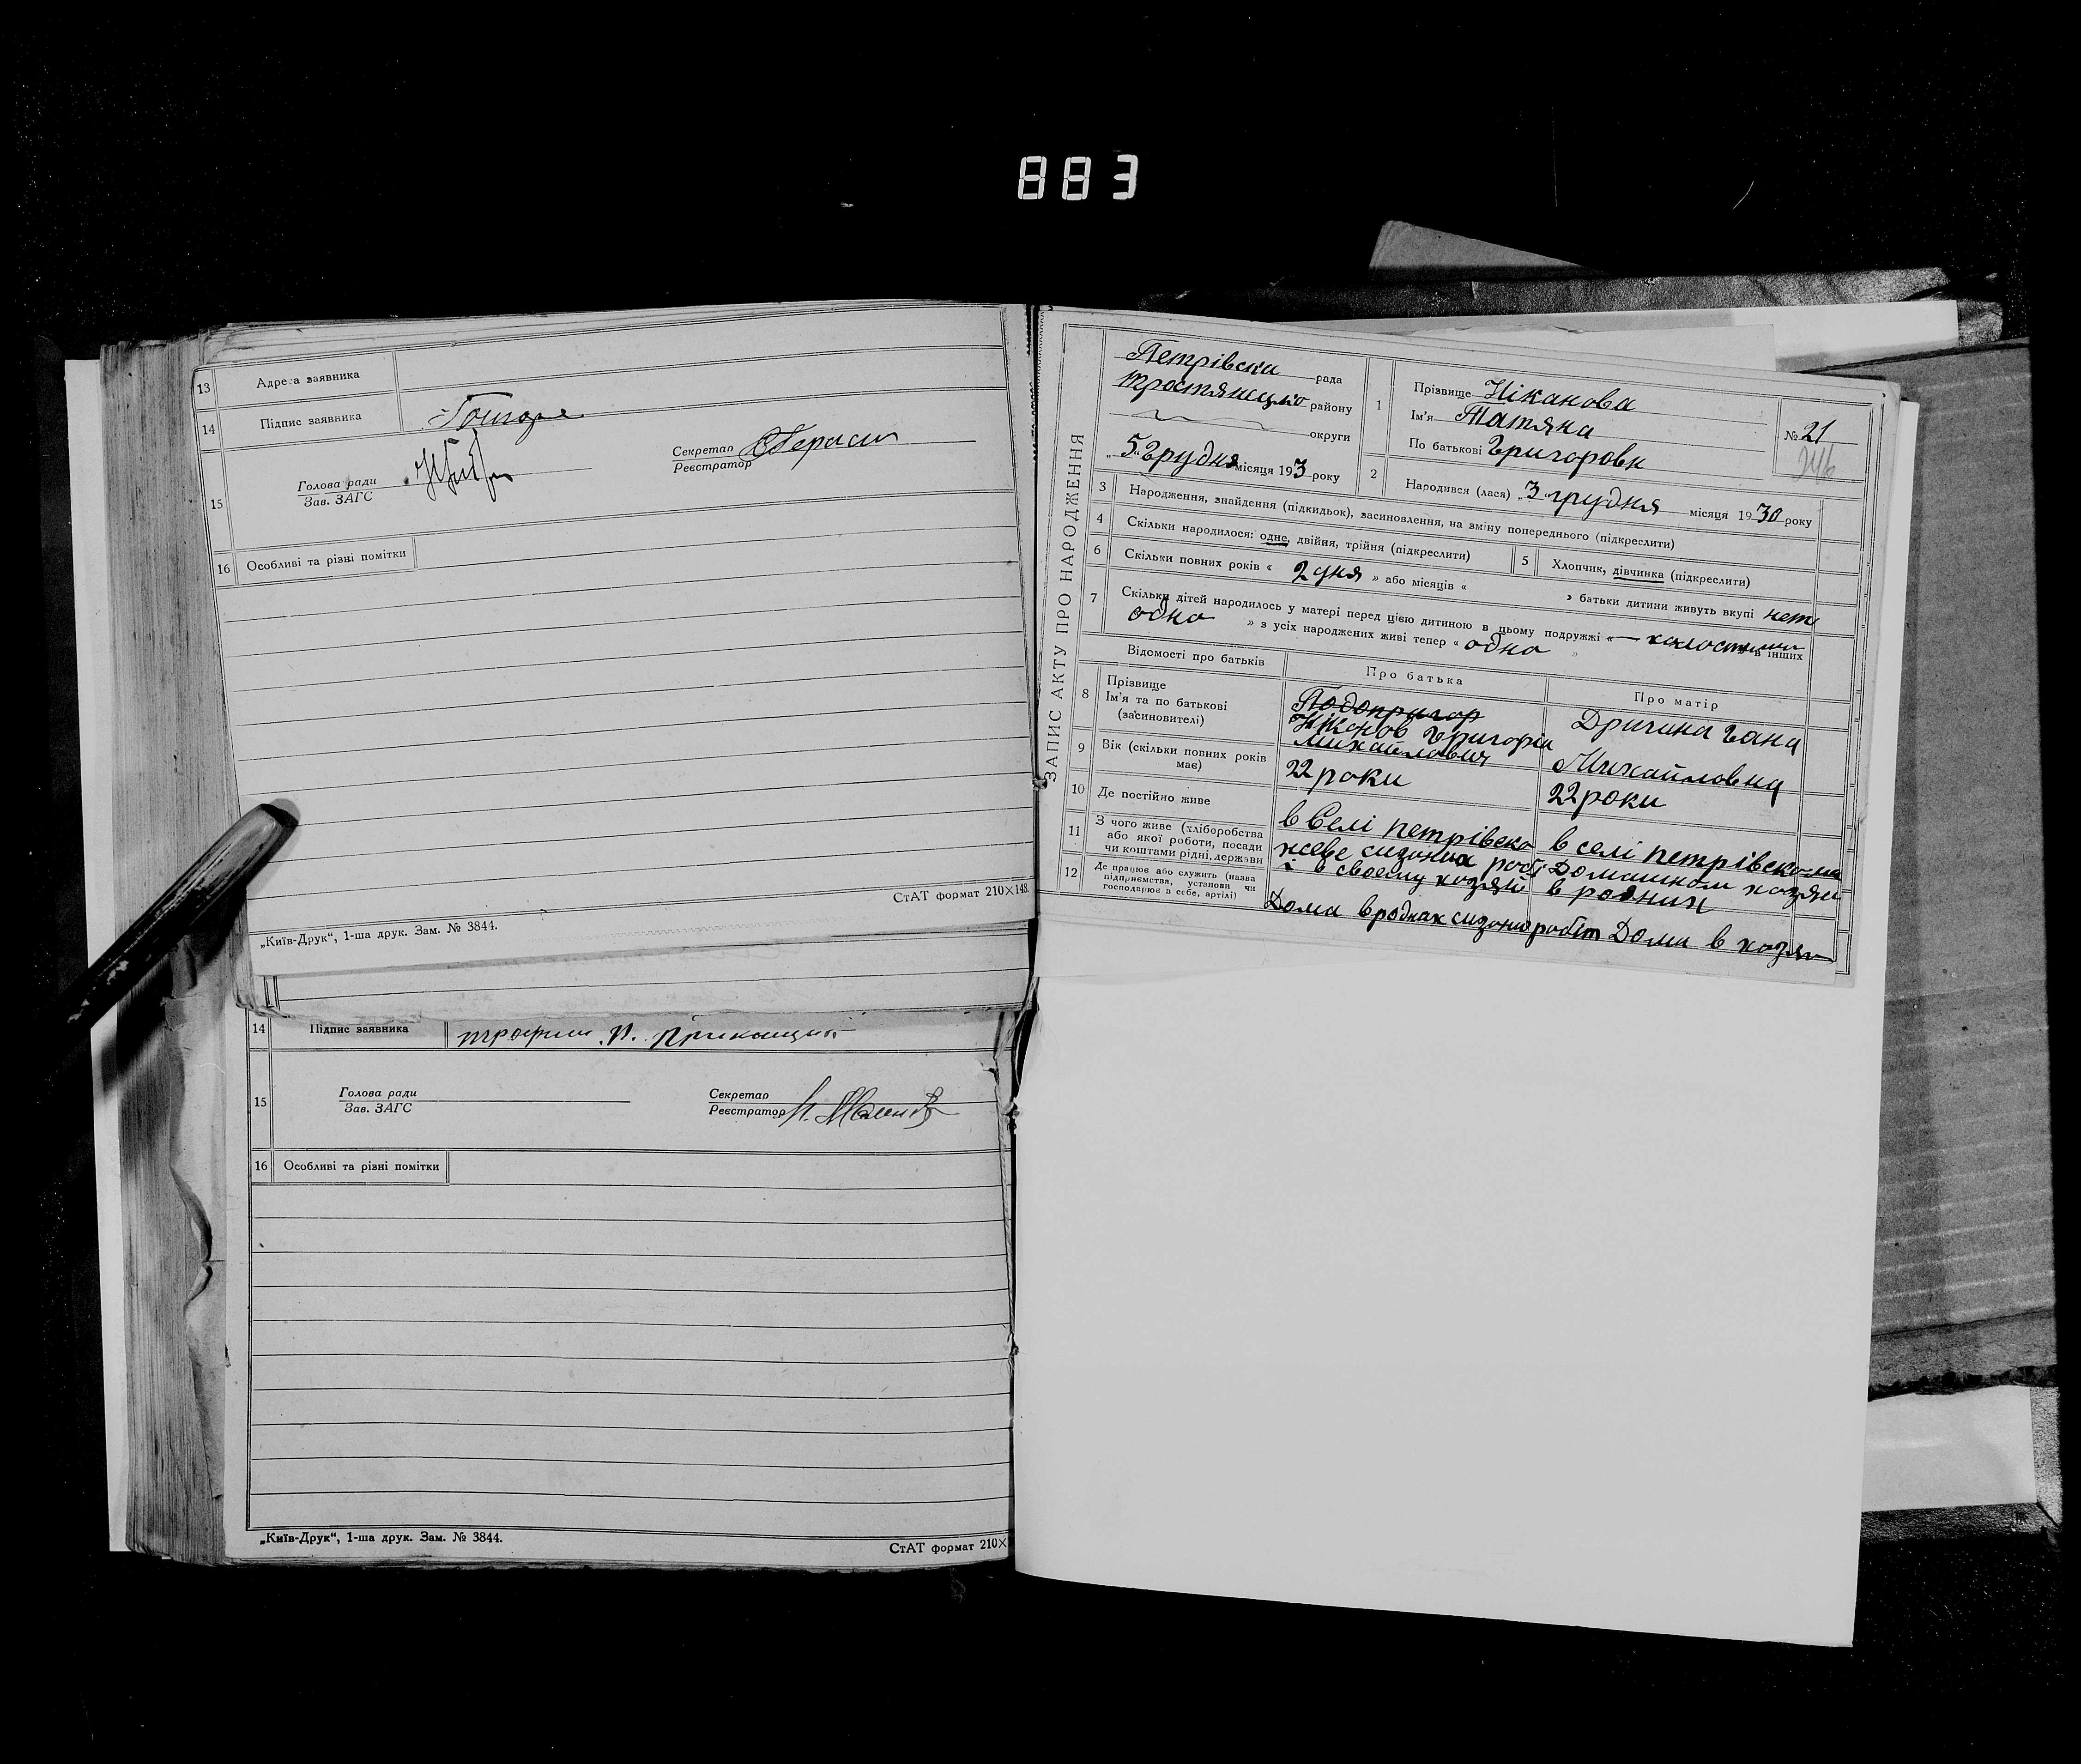 883
13 Адреса заявника
14 Підпис заявника
15 Голова ради
Зав. ЗАГС
Секретар
Реєстратор
16 Особливі та різні помітки
СтАТ формат 210×148.
„Київ-Друк“, 1-ша друк. Зам. № 3844.
14 Підпис заявника
15 Голова ради
Зав. ЗАГС
Секретар
Реєстратор
16 Особливі та різні помітки
„Київ-Друк“, 1-ша друк. Зам. № 3844.
СтАТ формат 210×
ЗАПИС АКТУ ПРО НАРОДЖЕННЯ
Петрівска рада
Тростянецко району
округи
„5„ Грудня місяця 193 року
1 Прізвище Ніканова
Ім'я Татяна
По батькові Григоровн
№ 21
2 Народився (лася) „3„ грудня місяця 1930 року
3 Народження, знайдення (підкидьок), засиновлення, на зміну попереднього (підкреслити)
4 Скільки народилося: одне, двійня, трійня (підкреслити)
5 Хлопчик, дівчинка (підкреслити)
6 Скільки повних років « 2 дня » або місяців « » батьки дитини живуть вкупі нет
7 Скільки дітей народилось у матері перед цією дитиною в цьому подружжі « — в інших
одно » з усіх народжених живі тепер « одно »
Відомості про батьків
Про батька
Про матір
8 Прізвище
Ім'я та по батькові
(засиновителі)
Подопригор
Ніканов Григорій
Михайлович
Дригина Гана
Михайловна
9 Вік (скільки повних років має)
22 роки
22 роки
10 Де постійно живе
в Селі петрівско
в селі петрівском
11 З чого живе (хліборобства
або якої роботи, посади
чи коштами рідні, держави
живе сизоних робі
і в своему хозяй
Домашном хозяй
в родних
12 Де працює або служить (назва
підприємства, установи чи
господарює в себе, артілі)
Дома в роднах сизоно робіт
Дома в хозяй